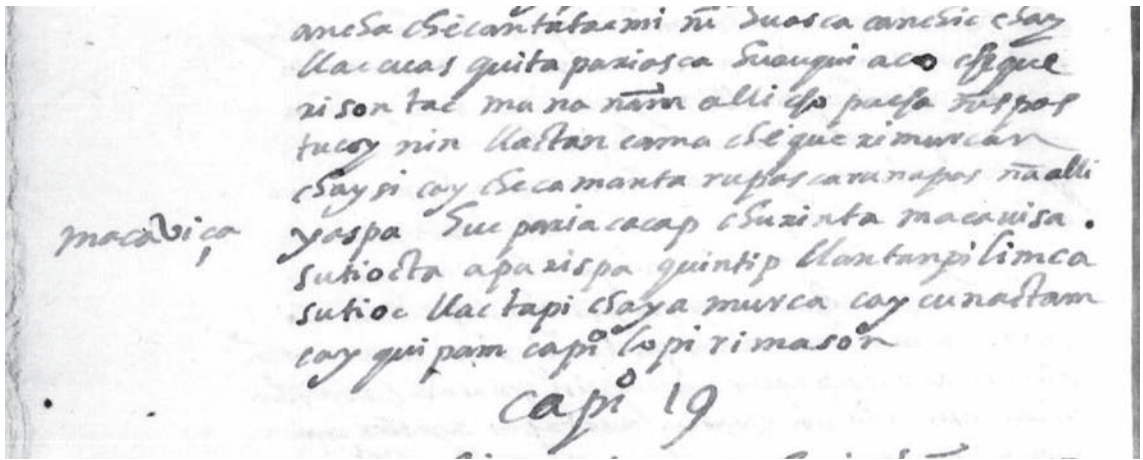 ancha checantatacmi ñi huasca canchic chay
llacuas quita pariasca huauqui aco cheque
rison tac mana ñam allicho pacha ñispas
tucoy nin llactan cama chequerimurcan
chaysi cay checamanta rupas caru napas ña alli
macaviça
yaspa huc pariacacap churinta macauisa .
sutiocta aparispa quintip llactanpi limca
sutioc llactapi chayamurca cay cunactam
cay quipam capiº lopi rimasōn
capiº 19